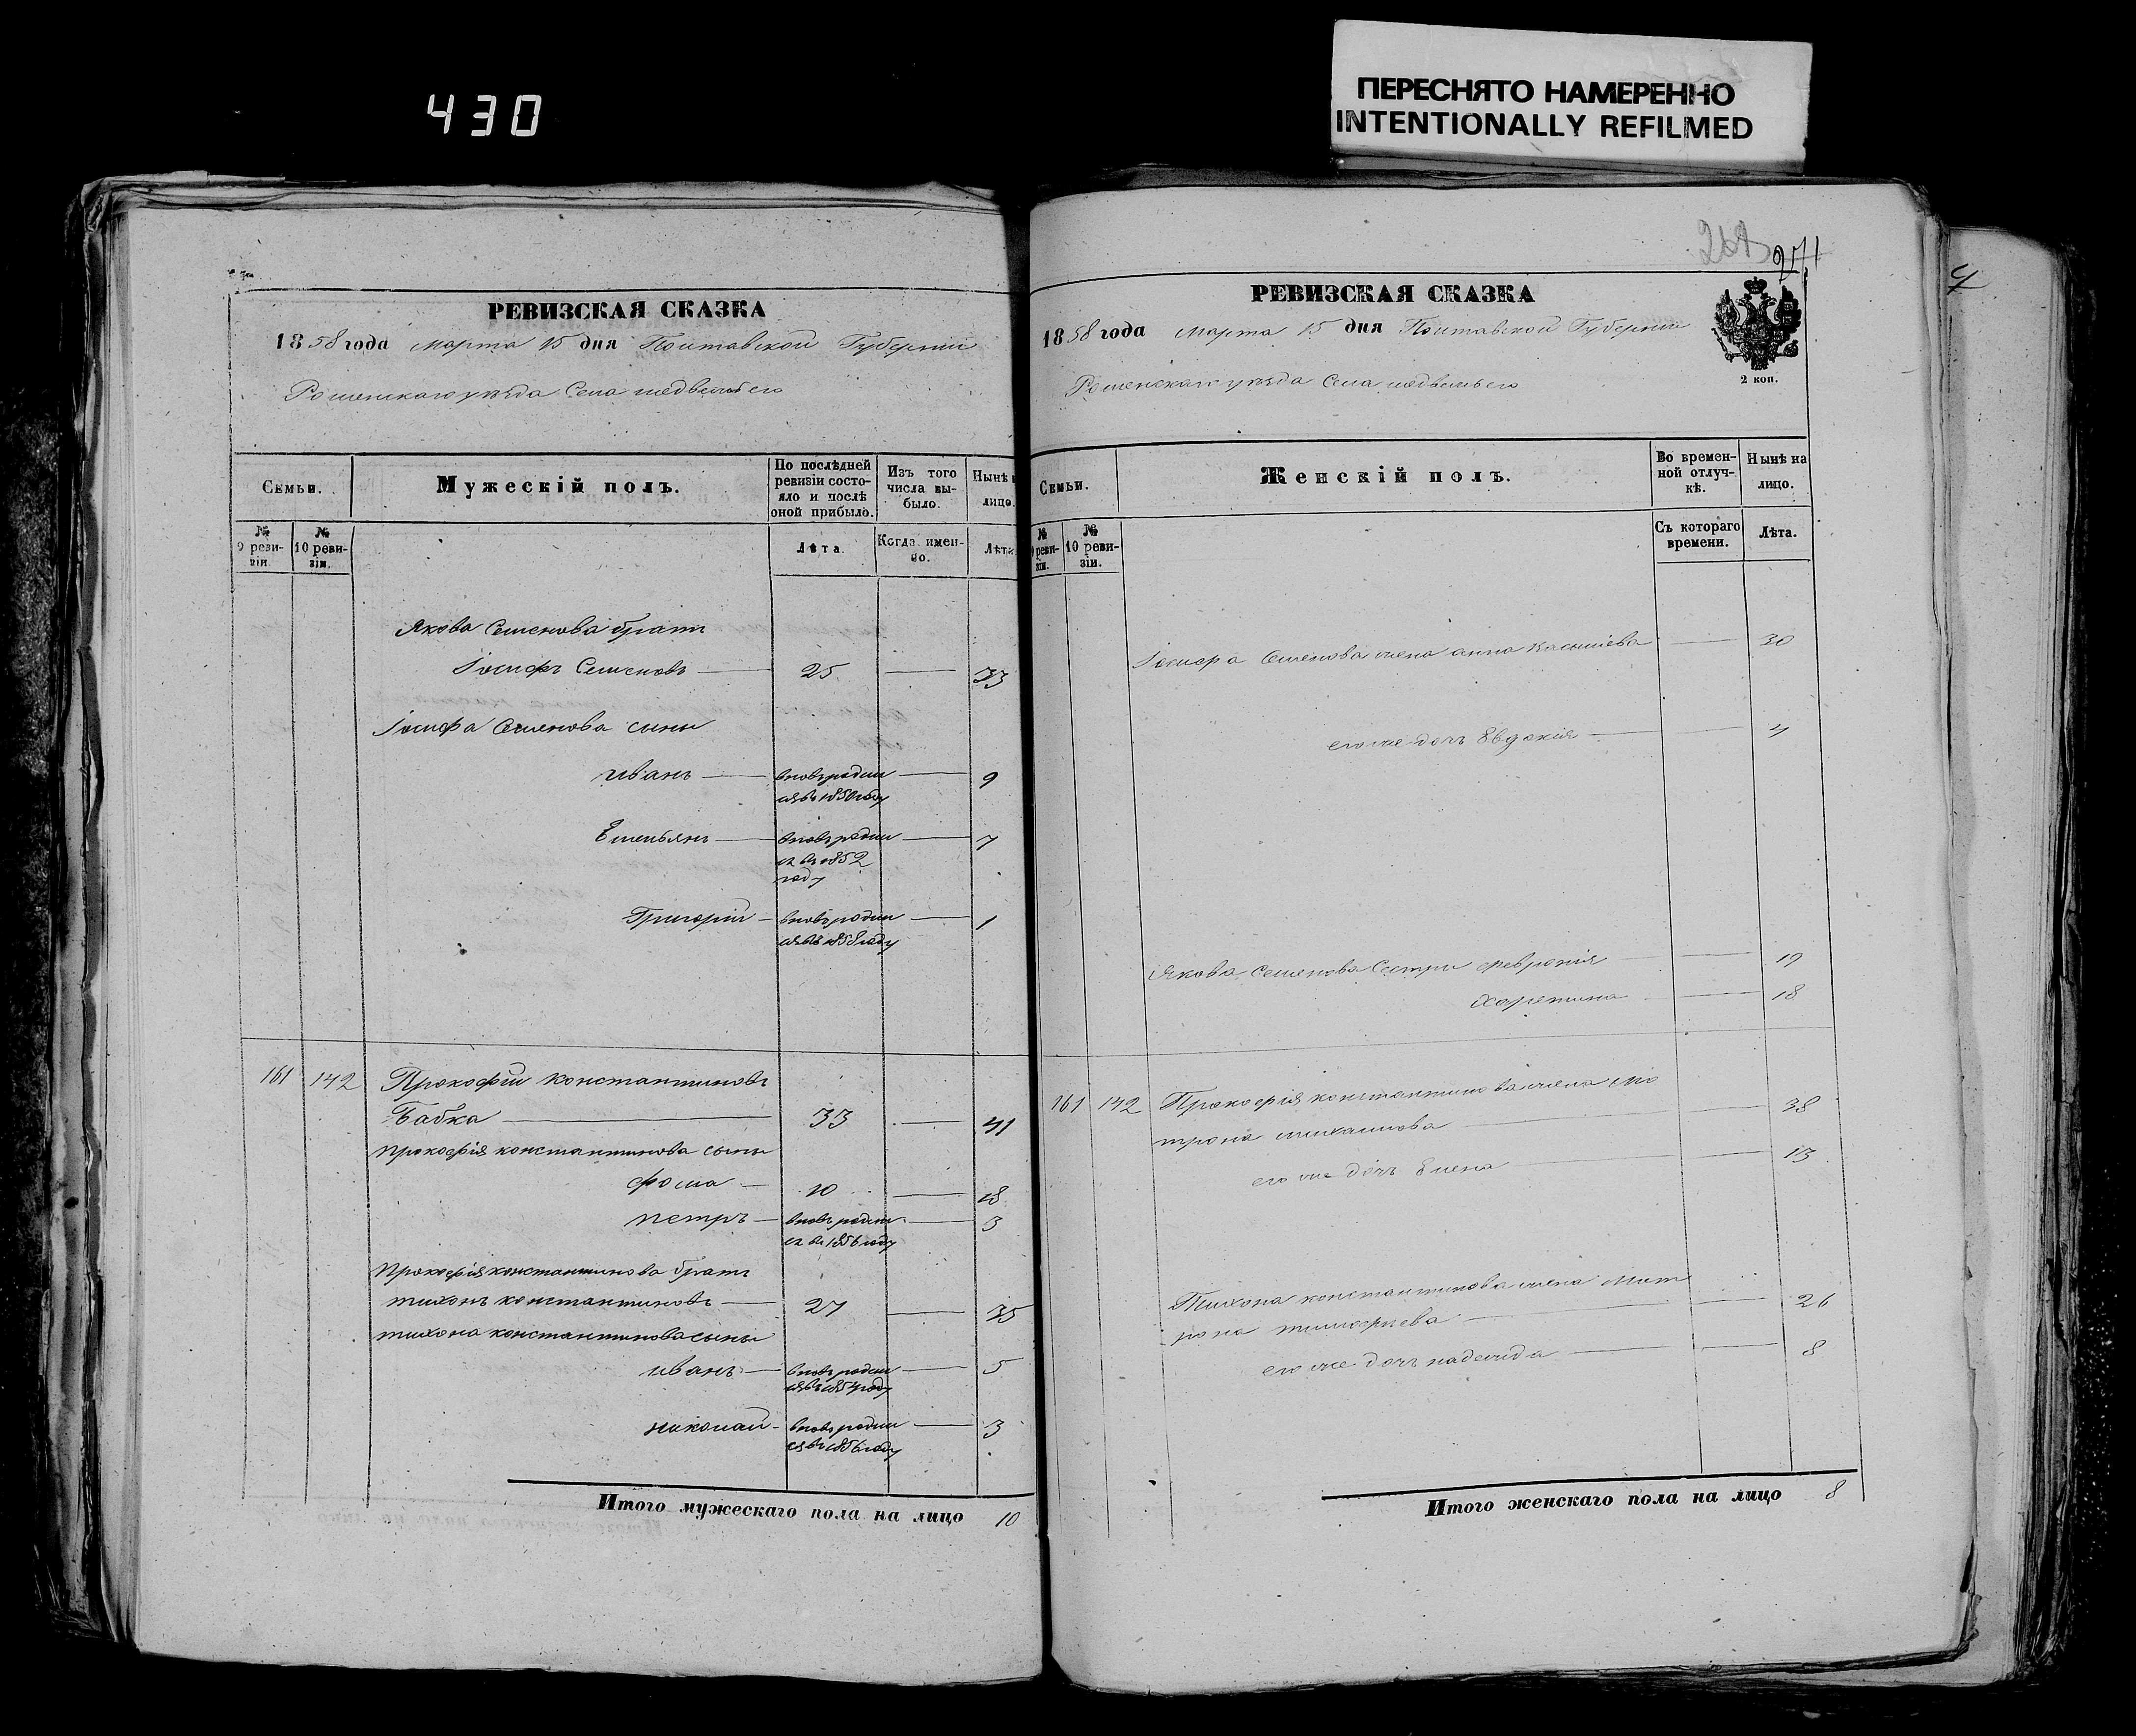 430
ПЕРЕСНЯТО НАМЕРЕННО
INTENTIONALLY REFILMED
РЕВИЗСКАЯ СКАЗКА
1858 года Марта 15 дня Полтавской Губернии
Роменскаго уѣзда Села медвежьего
Семьи.
Мужескій полъ.
По послѣдней ревизіи состояло и послѣ оной прибыло.
Изъ того числа выбыло.
Нынѣ на лицо.
№ 9 ревизіи.
№ 10 ревизіи.
Лѣта.
Когда имен-но.
Лѣта
Якова Семенова братъ
Іосифъ Семеновъ 25 33
Іосифа Семенова сыны
иванъ вновь родил 9
ся въ 1850 году
Емельянъ вновь родил 7
ся въ 1852
году
Григорій вновь родил 1
ся въ 1858 году
161 142 Прокофій константиновъ
Бабка 33 41
прокофія константинова сыны
фома 10 18
петръ вновь родил 3
ся въ 1856 году
прокофія константинова братъ
тихонъ константиновъ 27 35
тихона константинова сыны
иванъ вновь родил 5
ся въ 1854 году
николай вновь родил 3
ся въ 1856 году
Итого мужескаго пола на лицо 10
271
РЕВИЗСКАЯ СКАЗКА
1858 года Марта 15 дня Полтавской Губернии
Роменскаго уѣзда Села медвежьего
2 коп.
Семьи.
Женскій полъ.
Во времен-ной отлуч-кѣ.
Нынѣ на лицо.
№ 9 ревизіи.
№ 10 ревизіи.
Съ котораго времени.
Лѣта.
Іосифа Семенова жена анна 30
его же дочь Евдокія 4
Якова Семенова Сестри феврония 19
харетина 18
161 142 Прокофія константинова жена Мо
трона михаилова 38
его же дочь Елена 13
Тихона константинова жена Мат
рона тимофеева 26
его же дочь надежда 8
Итого женскаго пола на лицо 8
4